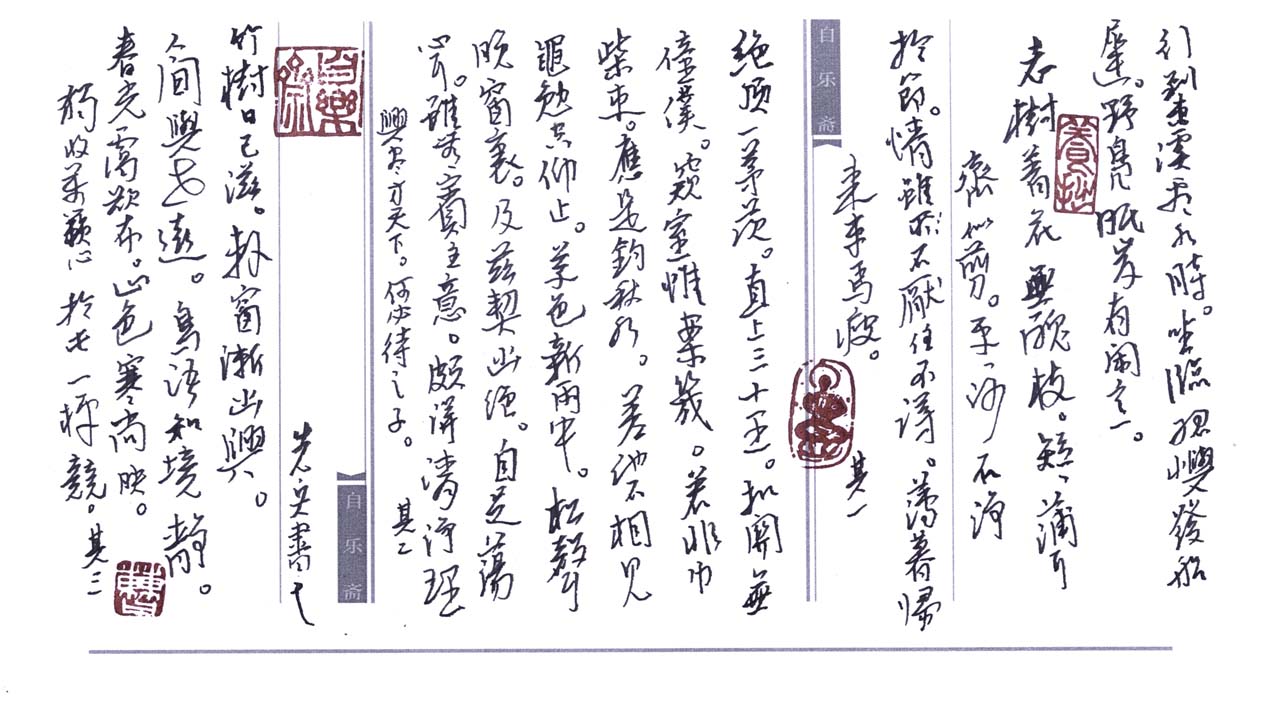 行到東溪看水時。坐臨孤嶼發船
遲。野鳧眠岸有閑意。
老樹着花無醜枝。短短蒲耳
齊似剪。平平沙石淨
於篩。情雖不厭住不得。薄暮歸
来車馬疲。 其一
自乐斋
絕頂一茅茨。直上三十里。扣關無
僮僕。窺室惟案。若非巾
柴車。應是釣秋水。差池不相見
黽勉空仰止。草色新雨中。松聲
晚窗裏。及茲契幽絕。自足蕩
心耳。雖無賓主意。頗得清淨理
興盡方下。何必待之子。 其二
自乐斋
書
竹樹日已滋。林窗漸幽興。
人間與世遠。鳥語知境靜。
春光靄欲布。山色寒尚映。
獨收萬籟心 於此一枰競。其三
養拙
自樂齋